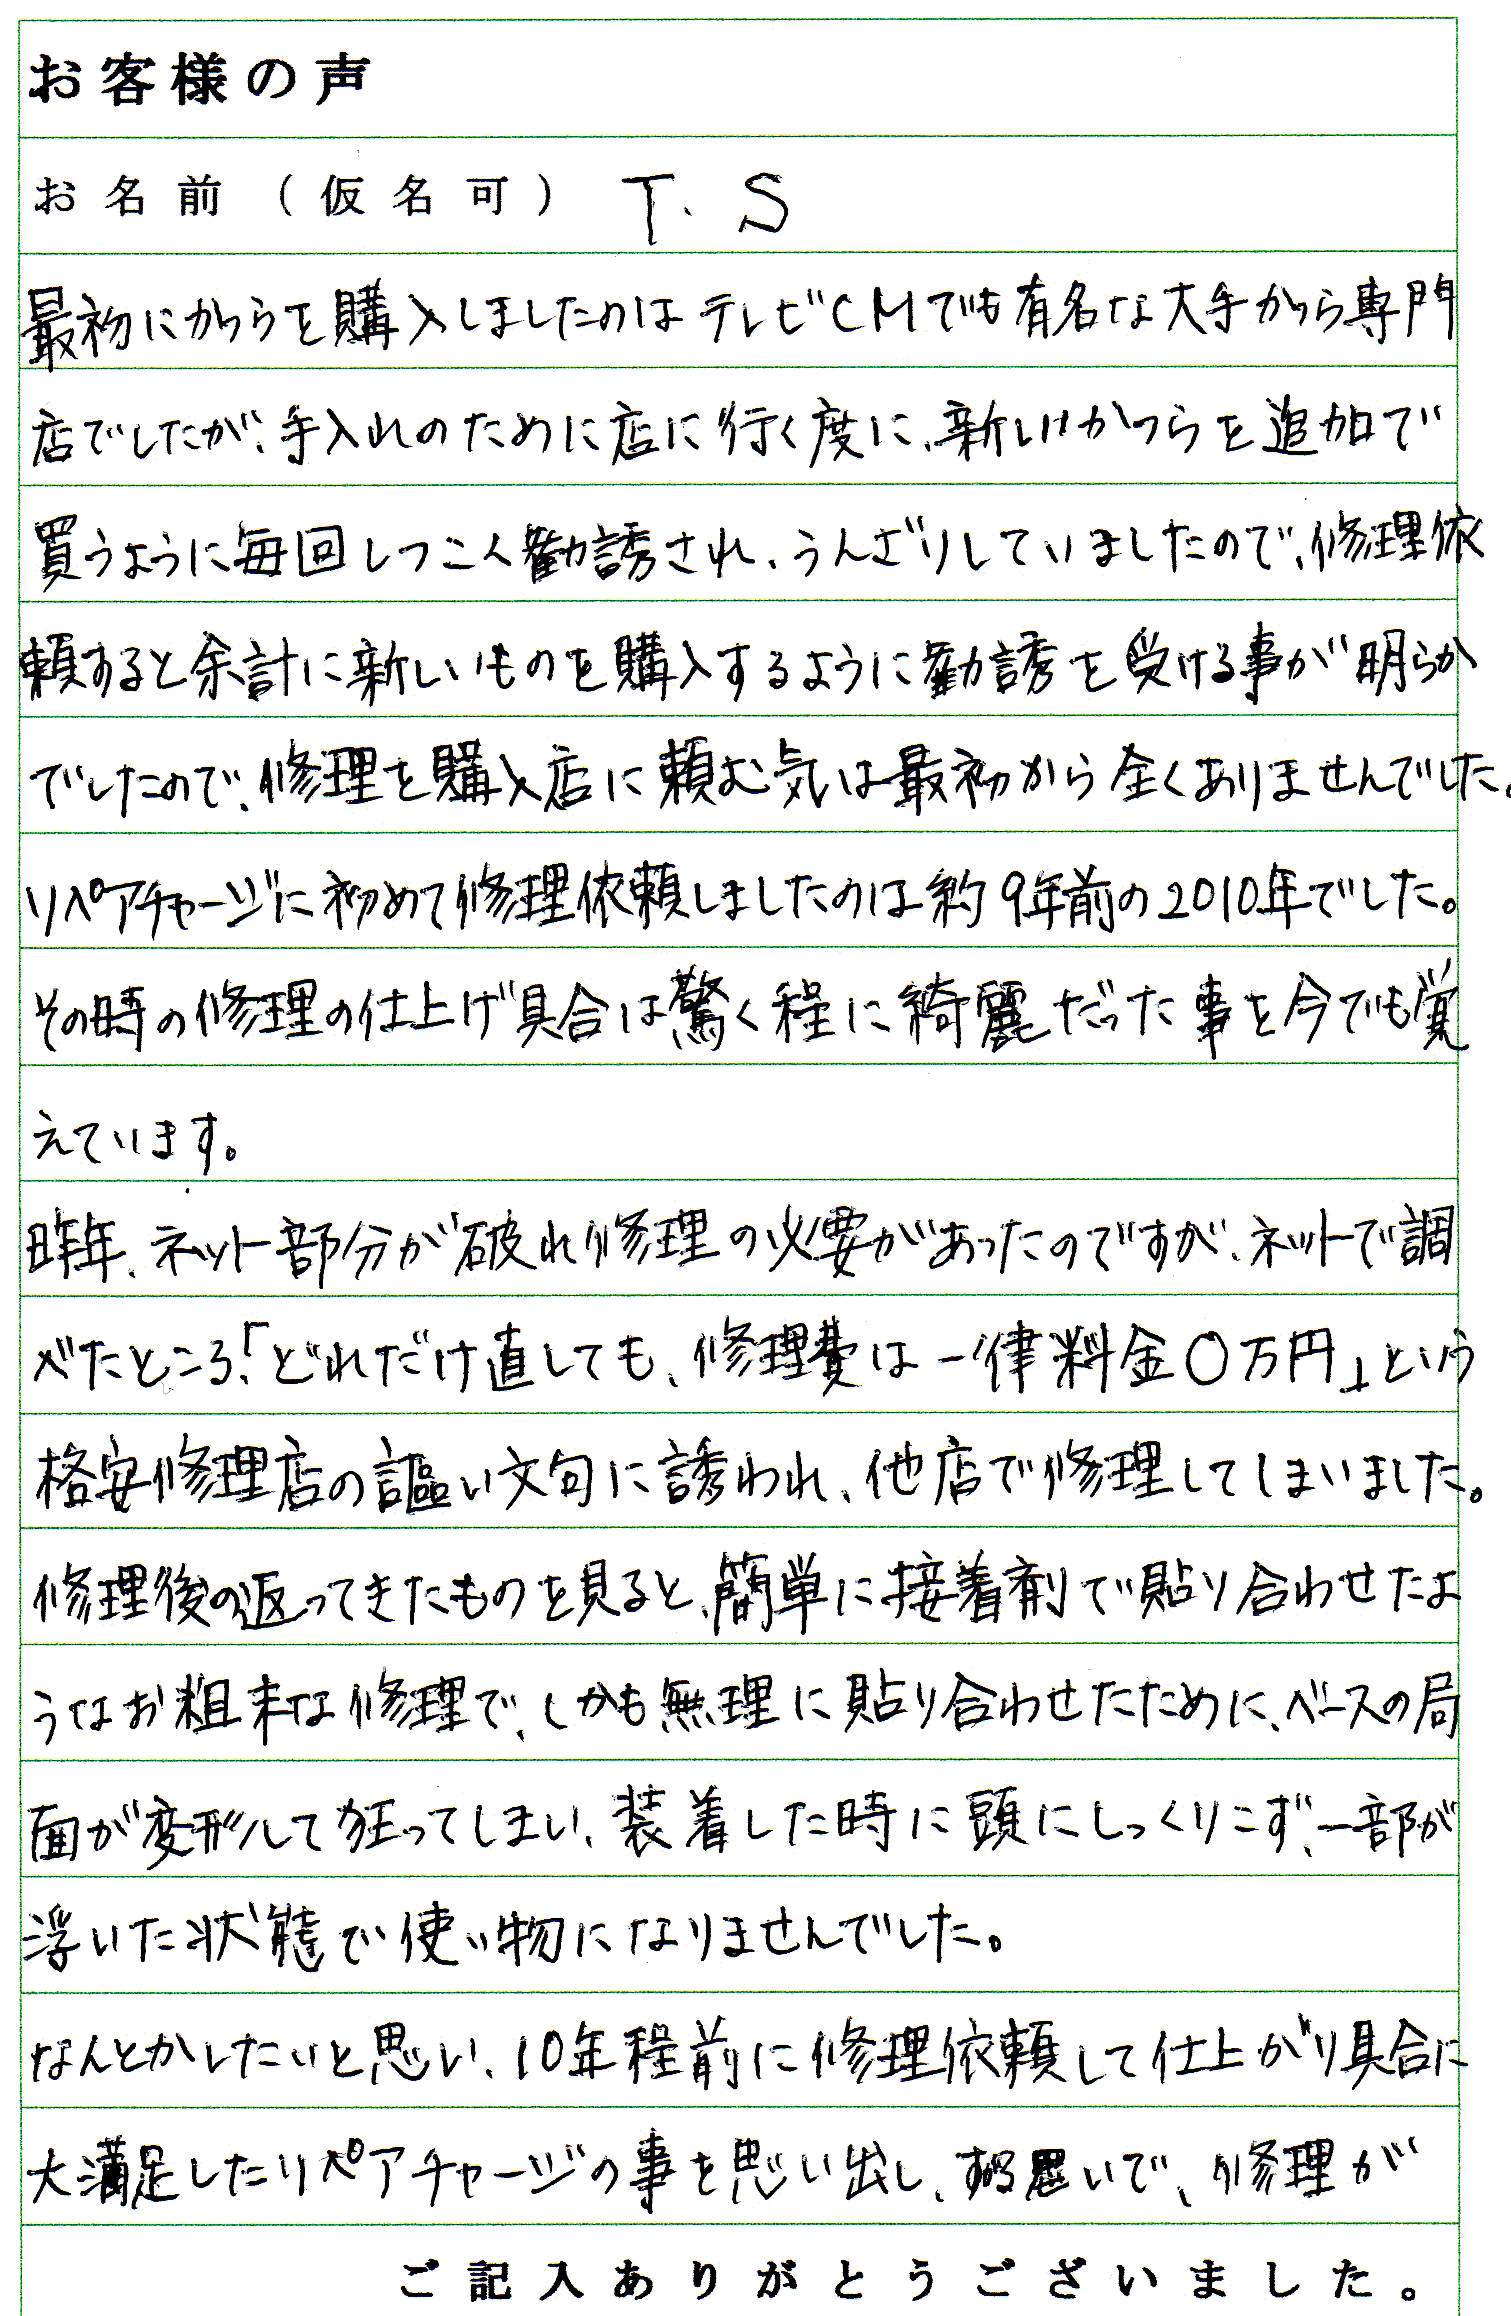 お客様の声
お名前(仮名可) T.S
最初にかつらを購入しましたのはテレビCMでも有名な大手かつら専門
店でしたが、手入れのために店に行く度に、新しいかつらを追加で
買うように毎回しつこく勧誘され、うんざりしていましたので、修理依
頼すると余計に新しいものを購入するように勧誘を受ける事が明らか
でしたので、修理を購入店に頼む気は最初から全くありませんでした。
リペアチャージに初めて修理依頼しましたのは約9年前の2010年でした。
その時の修理の仕上げ具合は驚く程に綺麗だった事を今でも覚
えています。
昨年、ネット部分が破れ修理の必要があったのですが、ネットで調
べたところ、「どれだけ直しても、修理費は一律料金〇万円」という
格安修理店の謳い文句に誘われ、他店で修理してしまいました。
修理後の返ってきたものを見ると、簡単に接着剤で貼り合わせたよ
うなお粗末な修理で、しかも無理に貼り合わせたために、ベースの局
面が変形して狂ってしまい、装着した時に頭にしっくりこず、一部が
浮いた状態で使い物になりませんでした。
なんとかしたいと思い、10年程前に修理依頼して仕上がり具合に
大満足したリペアチャージの事を思い出し、する思いで、修理が
ご記入ありがとうございました。